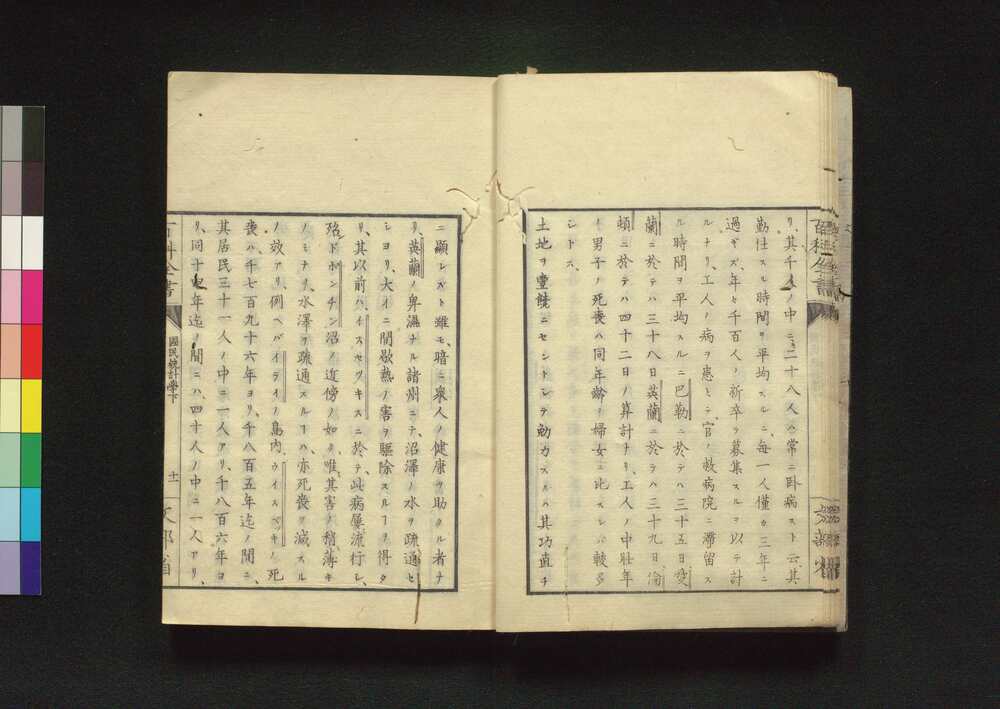 リ、其千人ノ中ニ、二十八人ハ常ニ臥病スト云、其
勤仕スル時間ヲ平均スルニ、毎一人僅カ三年ニ
過ギズ、年々千百人ノ新卒ヲ募集スルヲ以テ計
ルナリ、工人ノ病ヲ患ヒテ、官ノ救病院ニ滞留ス
ル時間ヲ平均スルニ巴勒ニ於テハ三十五日愛
蘭ニ於テハ三十八日英蘭ニ於テハ三十九日、倫
頓ニ於テハ四十二日ノ算計ナリ、工人ノ中壮年
ノ男子ノ死喪ハ同年齢ノ婦女ニ比スレバ較多
シトス、
土地ヲ豊饒ニセントシテ勤力スルハ其功直チ
ニ顕レズト雖モ、暗ニ衆人ノ健康ヲ助クル者ナ
リ、英蘭ノ卑濕ナル諸州ニテ、沼澤ノ水ヲ疏通セ
シヨリ、大イニ間歇熱ノ害ヲ驅除スルヿヲ得タ
リ、其以前ハ、イスセツキスニ於テ、此病屢流行シ、
殆ドポンチン沼ノ近傍ノ如ク唯其害ノ稍薄キ
ノミナリ、水澤ヲ疏通スルヿハ、亦死喪ヲ減スル
ノ效アリ、例ヘバイライノ島内、ウイスベキノ死
喪ハ、千七百九十六年ヨリ、千八百五年迄ノ間ニ、
其居民三十一人ノ中ニ一人アリ、千八百六年ヨ
リ、同十五年迄ノ間ニハ、四十人ノ中ニ一人アリ、
百科全書
國民統計學下
十一
文部省